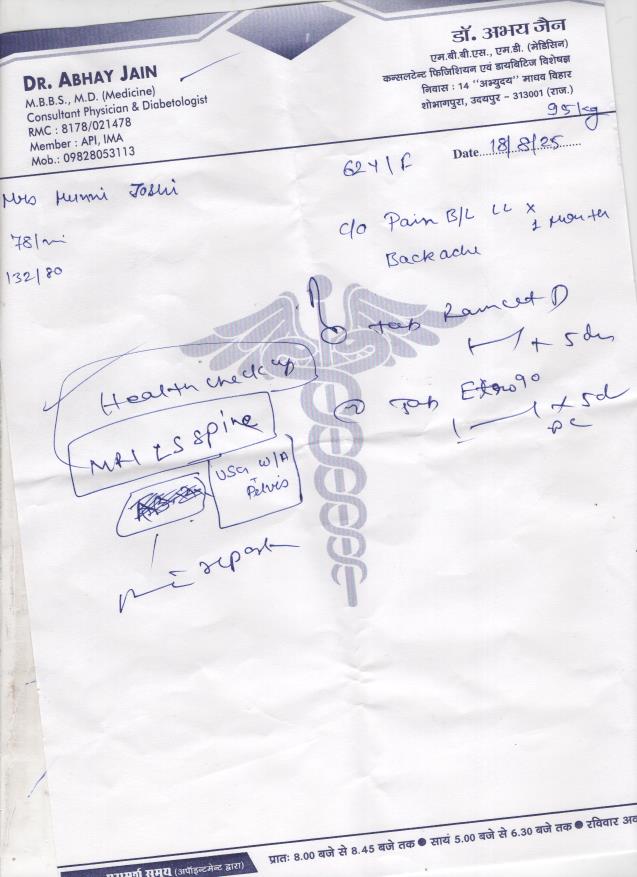 DR. ABHAY JAIN
M.B.B.S., M.D. (Medicine)
Consultant Physician & Diabetologist
RMC : 8178/021478
Member : API, IMA
Mob.: 09828053113
डॉ. अभय जैन
एम.बी.बी.एस., एम.डी. (मेडिसिन)
कन्सलटेन्ट फिजिशियन एवं डायबिटिज विशेषज्ञ
निवास : 14 "अभ्युदय" माधव विहार
शोभागपुरा, उदयपुर - 313001 (राज.)
95kg
Date 18/8/25
62Y/F
Mrs Munni Joshi
78/mi
132/80
c/o Pain B/L LL x 1 Month
Backache
Tab D
+ 5d
Health check up
② Tab Etro 90
x 5d
pc
MRI LS Spine
USG W/A
Pelvis
report
प्रातः 8.00 बजे से 8.45 बजे तक ● सायं 5.00 बजे से 6.30 बजे तक ● रविवार
समय (अपॉइन्टमेन्ट द्वारा)